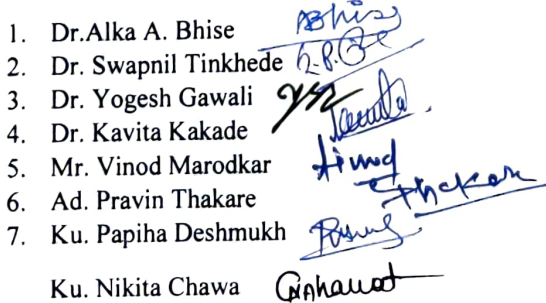 1. Dr.Alka A. Bhise ABhise
2. Dr. Swapnil Tinkhede
3. Dr. Yogesh Gawali
4. Dr. Kavita Kakade
5. Mr. Vinod Marodkar
6. Ad. Pravin Thakare Thakare
7. Ku. Papiha Deshmukh
Ku. Nikita Chawa